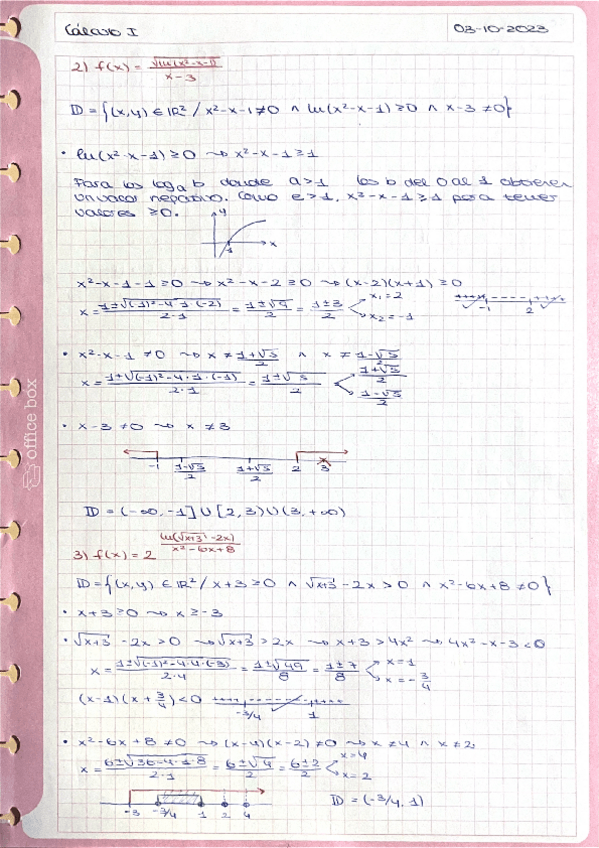 Cálculo I
03-10-2023
2) f(x) = √(ln(x²-x-1)) / x-3
D = {(x,y) ∈ IR² / x²-x-1≠0 ∧ ln(x²-x-1) ≥0 ∧ x-3 ≠0}
• ln(x²-x-1) ≥0 ⇝ x²-x-1≥1
Para los logₐ b donde a>1 los b del 0 al 1 obtienen
un valor negativo. Como e>1, x²-x-1≥1 para tener
valores ≥0.
y
x
1
x²-x-1-1≥0 ⇝ x²-x-2≥0 ⇝ (x-2)(x+1) ≥0
x = 1±√((1)²-4·1·(-2)) / 2·1 = 1±√9 / 2 = 1±3 / 2 x₁=2 x₂=-1
++++ ---- ++++ -1 2
• x²-x-1 ≠0 ⇝ x ≠ 1+√5 / 2 ∧ x ≠ 1-√5 / 2
x = 1±√((-1)²-4·1·(-1)) / 2·1 = 1±√5 / 2 1+√5 / 2 1-√5 / 2
• x-3 ≠0 ⇝ x ≠3
-1 1-√5 / 2 1+√5 / 2 2 3
office box
D = (-∞,-1] ∪ [2,3) ∪ (3,+∞)
3) f(x) = 2^(ln(√x+3 -2x) / x²-6x+8)
D = {(x,y) ∈ IR² / x+3 ≥0 ∧ √x+3 -2x >0 ∧ x²-6x+8 ≠0}
• x+3 ≥0 ⇝ x ≥-3
• √x+3 -2x>0 ⇝ √x+3 >2x ⇝ x+3 >4x² ⇝ 4x²-x-3<0
x = 1±√((-1)²-4·4·(-3)) / 2·4 = 1±√49 / 8 = 1±7 / 8 x=1 x=-3/4
(x-1)(x+3/4)<0 ++++ ------ ++++ -3/4 1
• x²-6x+8 ≠0 ⇝ (x-4)(x-2) ≠0 ⇝ x ≠4 ∧ x ≠2
x = 6±√(36-4·1·8) / 2·1 = 6±√4 / 2 = 6±2 / 2 x=4 x=2
-3 -3/4 1 2 4
D = (-3/4, 1)